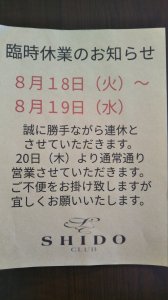 臨時休業のお知らせ
８月１８日（火）～
８月１９日（水）
誠に勝手ながら連休と
させていただきます。
20日（木）より通常通り
営業させていただきます。
ご不便をお掛け致しますが
宜しくお願いいたします。
SHIDO
CLUB